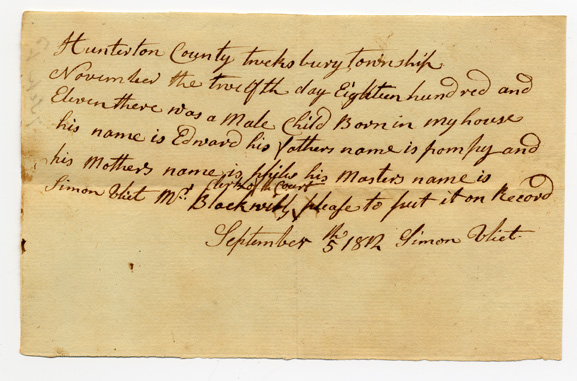 Hunterton County tuecksbury township
November the twelfth day Eighteen hundred and
Eleven there was a Male Child Born in my house
his name is Edward his fathers name is pompy and
his Mothers name is his Masters name is
Clerk of the Court
Simon Vliet Mr. Blackwell please to put it on Record
September 5th 1812 Simon Vliet